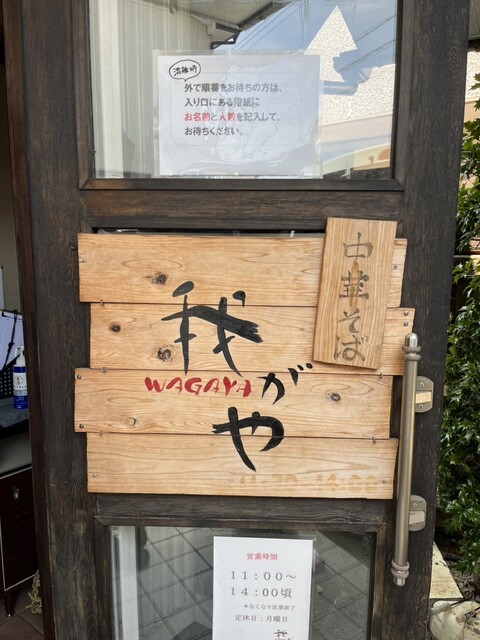 混雑時
外で順番をお待ちの方は、
入り口にある用紙に
お名前と人数を記入して、
お待ちください。
中華そば
我がや
WAGAYA
営業時間
11:00〜
14:00頃
＊なくなり次第終了
定休日：月曜日